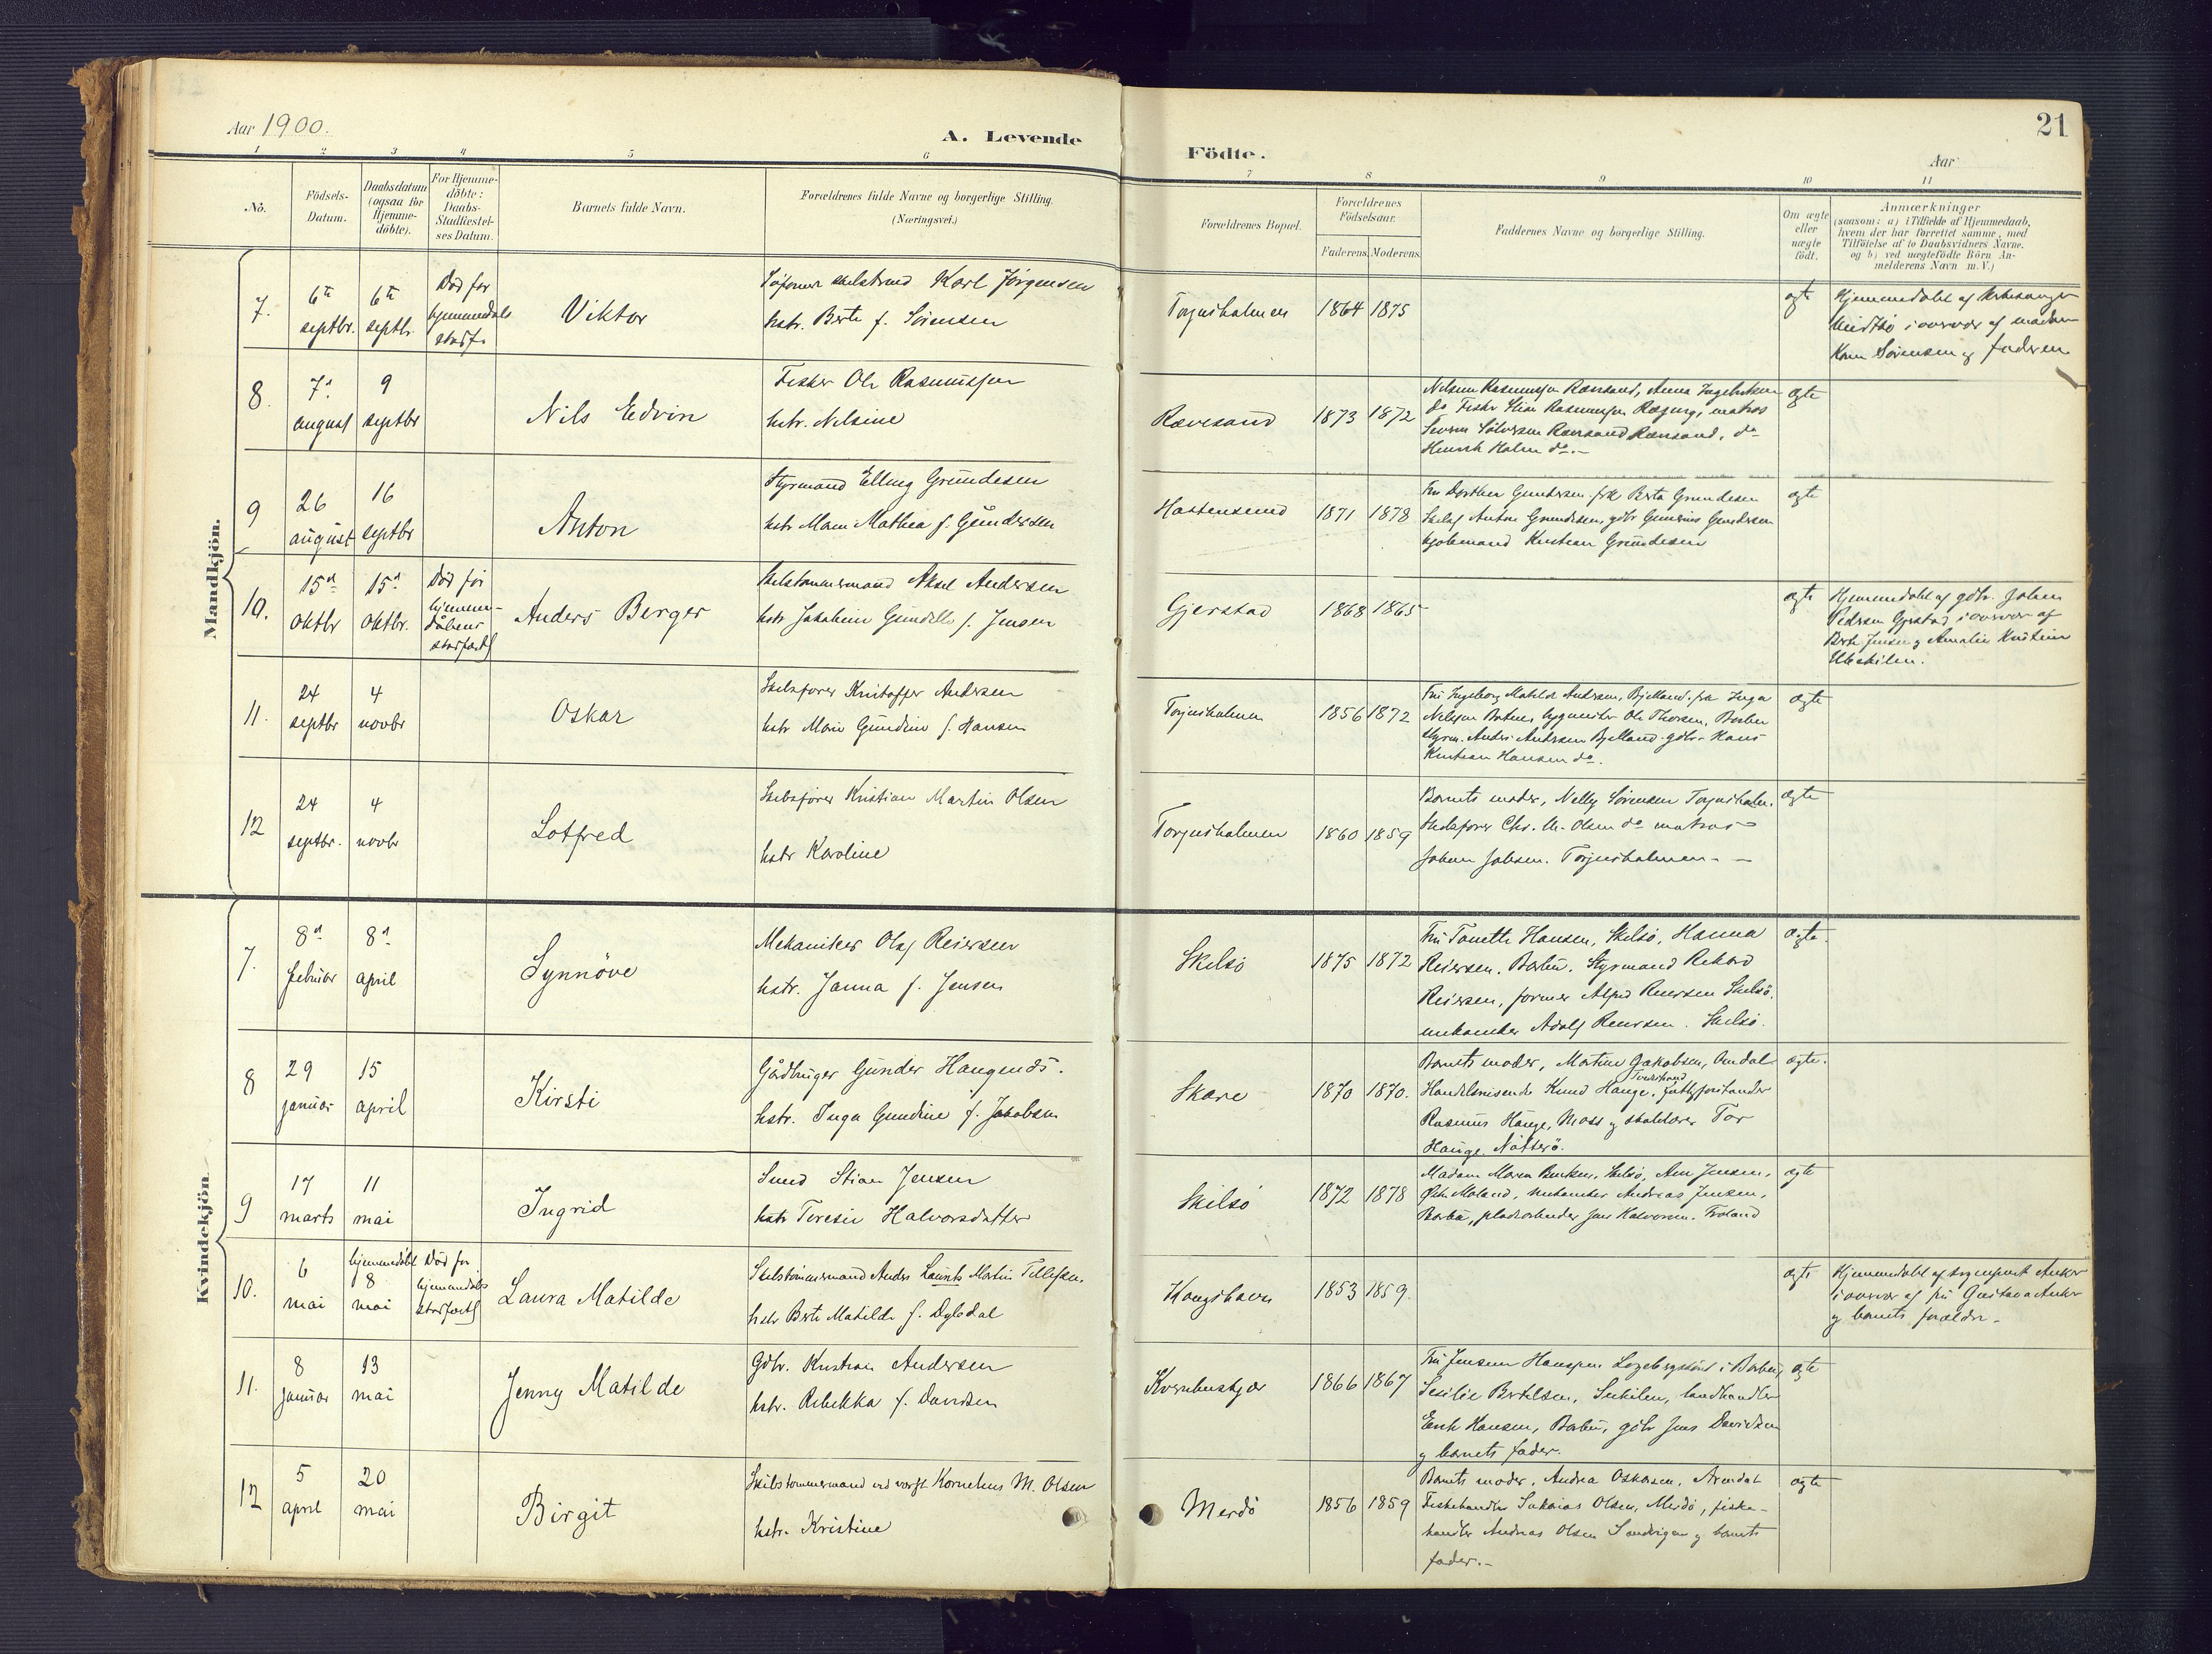 Aar 1900.
A. Levende
Födte.
21
Aar
1 2 3 4 5 6
7 8 9 10 11
No.
Födsels-
Datum.
Daabsdatum
(ogsaa for
Hjemme-
döbte).
For Hjemme-
döbte:
Daabs-
Stadfæstel-
ses Datum.
Barnets fulde Navn.
Forældrenes fulde Navne og borgerlige Stilling.
(Næringsvei.)
Forældrenes Bopæl.
Forældrenes
Födselsaar.
Faderens. Moderens.
Faddernes Navne og borgerlige Stilling.
Om ægte
eller
uægte
födt.
Anmærkninger
(saasom: a) i Tilfælde af Hjemmedaab,
hvem der har forrettet samme, med
Tilföielse af to Daabsvidners Navne.
og b) ved uægtefödte Börn An-
melderens Navn m. V.)
Mandkjön.
7.
6te
septbr.
6te
septb.
Död før
Viktor
Karl Jørgensen
hstr. Berte f. Sörensen
Torjusholmen
1864 1875
ægte
Hjemmedøbt af
i overvær af
Sörensen og faderen
8.
7de
august
9
septbr
Nils Edvin
Fisker Ole Rasmussen
hstr. Nilsine
Rævesand
1873 1872
ægte
9
26
august
16
septbr
Anton
Styrmand Elling Grundesen
hstr Mathea f. Gundersen
Hastensund
1871 1878
Fru Dorthea Gundersen frk Berta Grundesen
Anton Grundesen, gdbr Gunerius Gundersen
Kristian Grundesen
ægte
10.
15de
oktbr
15de
oktbr.
Död før
hjemme-
dåbens
stadfæst
Anders Berger
Skibstømmermand Aksel Andersen
hstr Jakobine f. Jensen
Gjerstad
1868 1865
ægte
Hjemmedøbt af gdbr. Johan
Pedersen Gjerstad i overvær af
Berte Jensen og Amalie Kristine
11.
24
septbr
4
novbr
Oskar
Skibsfører Kristoffer Andersen
hstr Marie Gundine f. Hansen
Torjusholmen
1856 1872
Fru Ingeborg Matilde Andersen, Bjelland. frk Inga
Ole Thorsen, Barbu
styrm. Andersen Bjelland. gdbr. Hans
Kristian Hansen do.
ægte
12
24
septbr.
4
novbr
Lotfred
Skibsfører Kristian Martin Olsen
hstr Karoline
Torjusholmen
1860 1859
Barnets moder, Nelly Sörensen Torjusholm.
Skibsfører Chr. M. Olsen do matros
Johan Jobsen. Torjusholmen.
ægte
Kvindekjön.
7.
8de
februar
8de
april
Synnöve
Mekaniker Olaf Reiersen
hstr. Janna f. Jensen
Skilsö
1875 1872
Fru Tonette Hansen, Skilsö, Hanna
Reiersen. Barbu. Styrmand Rikard
Reiersen, former Alfred Reiersen Skilsö.
mekaniker Adolf Reiersen. Skilsö.
ægte.
8
29
januar
15
april
Kirsti
Gårdbruger Gunder Haugends.
hstr. Inga Gundine f. Jakobsen
Skare
1870 1870.
Barnets moder, Martine Jakobsen, Omdal
Handelsreisende Knud Hauge, fattigforstander
Rasmus Hauge, Moss og skolelærer Tor
Hauge. Nötterö.
ægte.
9
17
marts
11
mai
Ingrid
Smed Stian Jensen
hstr Teresie Halvorsdatter
Skilsö
1872 1878
Madam Maren Skilsö, Ane Jensen,
Moland, mekaniker Andreas Jensen,
Barbu, pladsarbeider Jens Halvorsen. Froland
ægte
10.
6
mai
hjemmedöbt
8
mai
Död før
hjemmedåbs
stadfæst
Laura Matilde
Skibstömmermand Anders Laurits Martin Tellefsen
hstr Berte Matilde f. Dybdal
Kongshavn
1853 1859.
ægte
Hjemmedøbt af
i overvær af fru Gustava
og barnets forældre.
11.
8
januar
13
mai
Jenny Matilde
Gdbr. Kristian Andersen
hstr. Rebekka f. Davidsen
1866 1867
Barbu,
Sesilie Bertelsen, landhandler
Erik Hansen, Barbu, gdbr Jens Davidsen
og barnets fader.
ægte
12
5
april
20
mai
Birgit
Skibstömmermand ved værft Kornelius M. Olsen
hstr. Kristine
Merdö
1856 1859
Barnets moder, Andrea Oskarsen, Arendal
Fiskehandler Sakarias Olsen, Merdö, fiske-
handler Andreas Olsen Sandvigen og barnets
fader.
ægte